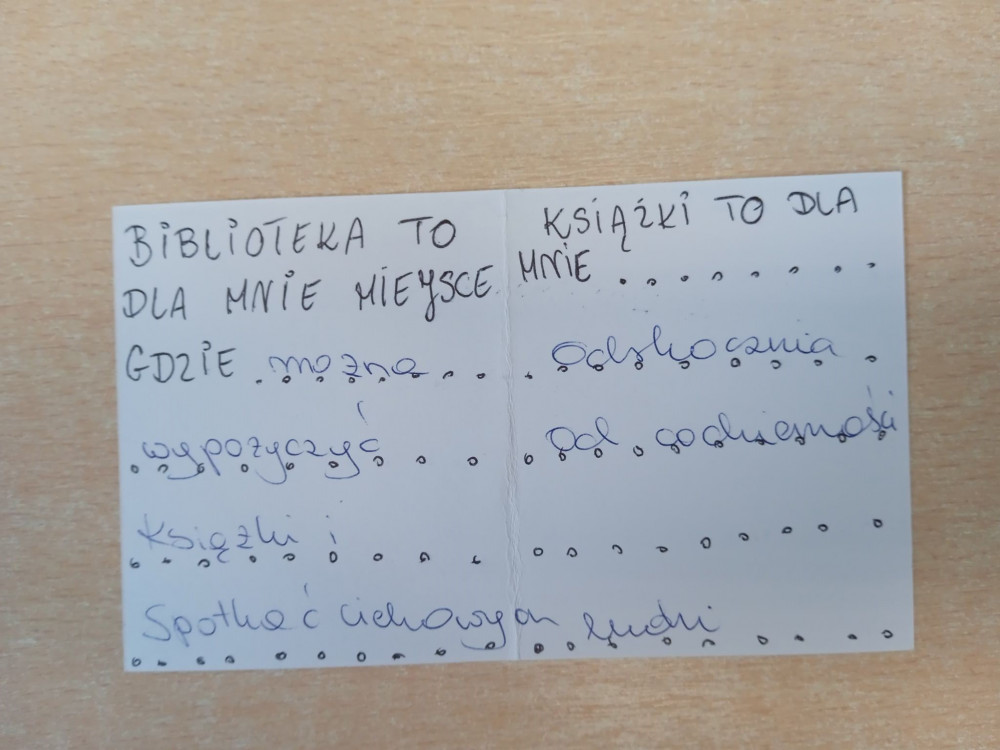 BIBLIOTEKA TO
DLA MNIE MIEJSCE
GDZIE można
wypożyczyć
Książki i
Spotkać ciekawych ludzi
KSIĄŻKI TO DLA
MNIE
Odskocznia
Od codzienności